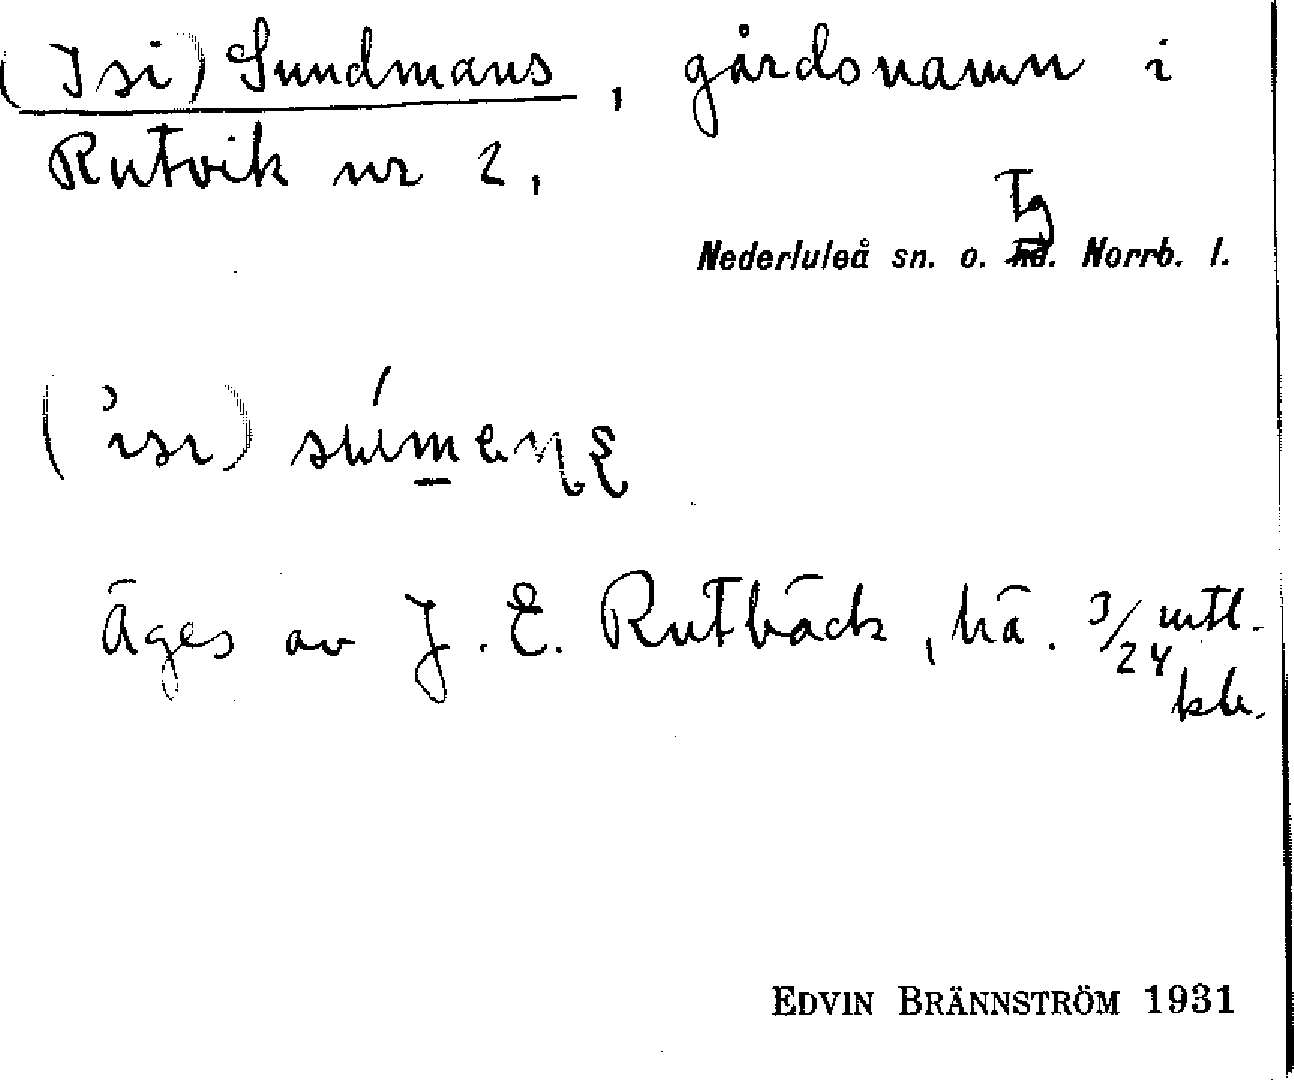 (Isi) Sundmans, gårdsnamn i
Rutvik nr 2,
Tg
Nederluleå sn. o. hd. Norrb. l.
Äges av J. E. Rutbäck, hä. 3/24 mtl.
kr.
EDVIN BRÄNNSTRÖM 1931